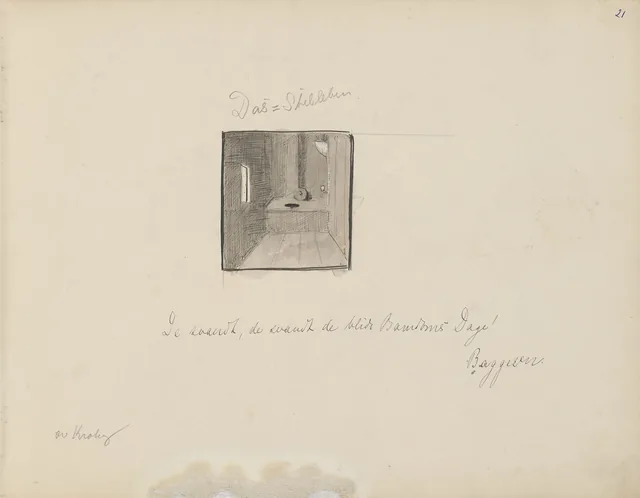 21
Das=Stilleben
De svandt, de svandt de blide Barndoms Dage!
Baggesen.
Krohg